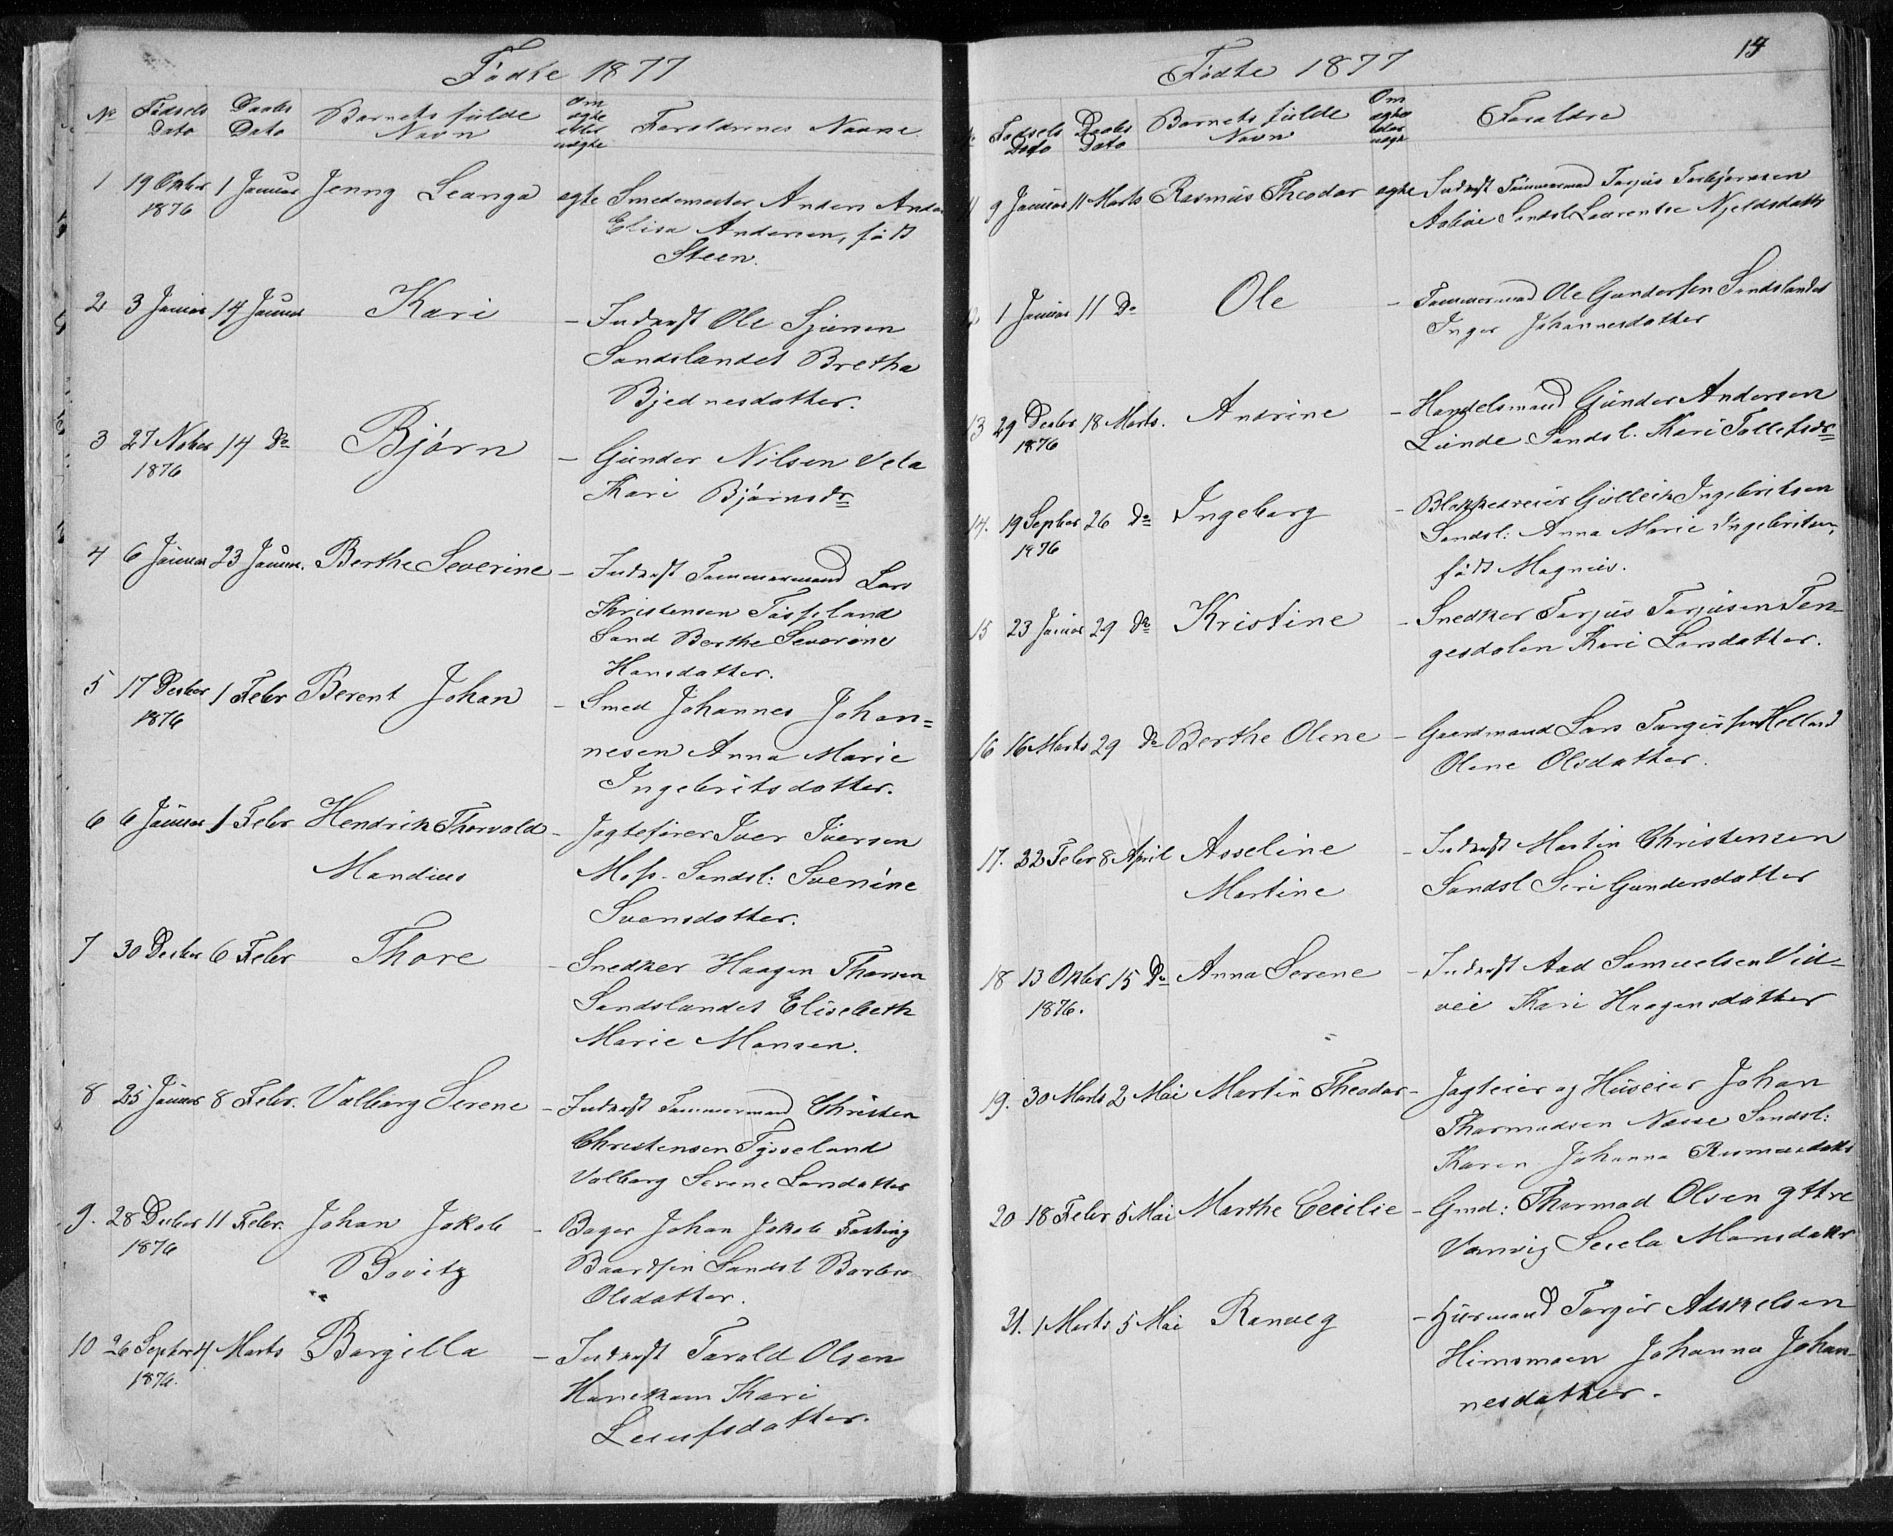 Fødte 1877
No Fødsels Dato Daabs Dato Barnets fulde Navn Om ægte eller uægte Forældrenes Navne
1 19 Oktbr 1 Januar Jenny Leanga ægte Smedemester Anders Ander
1876 Elisa Andersen, født
Steen.
2 3 Januar 14 Januar Kari – Indr. Ole Sjursen
Sandslandet Bretha
Bjednesdatter.
3 27 Novbr 14 Do Bjørn – Gunder Nilsen Vela
1876 Kari Bjørnsdr
4 6 Januar 23 Januar. Berthe Severine – Indr. Tømmermand Lars
Kristensen Tysseland
Sand Berthe Severine
Hansdatter.
5 17 Decbr 1 Febr Berent Johan – Smed Johannes Johan=
1876 nesen Anna Marie
Ingebritsdatter.
6 6 Januar 1 Febr Hendrik Thorvald – Jagtefører Iver Iversen
Mandius Moss. Sandsl: Sverine
Svensdatter.
7 30 Decbr 6 Febr Thore – Snedker Haagen Thorsen
Sandslandet Elisebeth
Marie Monsen.
8 25 Januar 8 Febr. Valborg Serene – Indr. Tømmermand Christen
Christensen Tysseland
Valborg Serene Larsdatter
9. 28 Decbr 11 Febr. Johan Jakob – Bager Johan Jakob Fasting
1876 Bovitz Baardsen Sandsl Barbro
Olsdatter.
10 26 Septbr 4. Marts Borgilla – Indr. Tarald Olsen
1876. Hanekam Kari
Leuufsdatter.
Fødte 1877
No Fødsels Dato Daabs Dato Barnets fulde Navn Om ægte eller uægte Forældre
11 9 Januar 11 Marts Rasmus Theodor ægte Indr. Tømmermand Tarjus Torbjørnsen
Aabøe Sandsl Laurentse Njeldsdatter
12 1 Januar 11 Do Ole – Tømmermand Ole Gundersen Sandslandet
Inger Johannesdatter
13 29 Decbr 18 Marts. Andrine – Handelsmand Gunder Andersen
1876 Lunde Sandsl. Kari Tollefsdr
14. 19 Septbr 26 Do Ingeborg – Blokkedreier Gulleik Ingebritsen
1876 Sandsl: Anna Marie Ingebritsen,
født Magnus.
15 23 Januar 29 Do Kristine – Snedker Tarjus Tarjusen Ten-
gesdalen Kari Larsdatter.
16 16 Marts 29 Do Berthe Olene – Gaardmand Lars Torgersen Helland
Olene Olsdatter.
17. 22 Febr 8 April Asseline – Indr. Martin Christensen
Martine Sandsl Siri Gundersdatter
18 13 Oktbr 15 Do Anna Serene – Indr. Aad Samuelsen Vid-
1876. vei Kari Haagensdatter
19. 30 Marts 2 Mai Martin Theodor – Jagteier og Huseier Johan
Thormodsen Næsse Sandsl:
Karen Johanna Rasmusdatter
20 18 Febr 5 Mai Marthe Cecilie – Gmd: Thormod Olsen yttre
Vanvig Secela Monsdatter
21. 1 Marts 5 Mai Ranveg – Husmand Torger Adskelsen
Himsmoen Johanna Johan-
nesdatter.